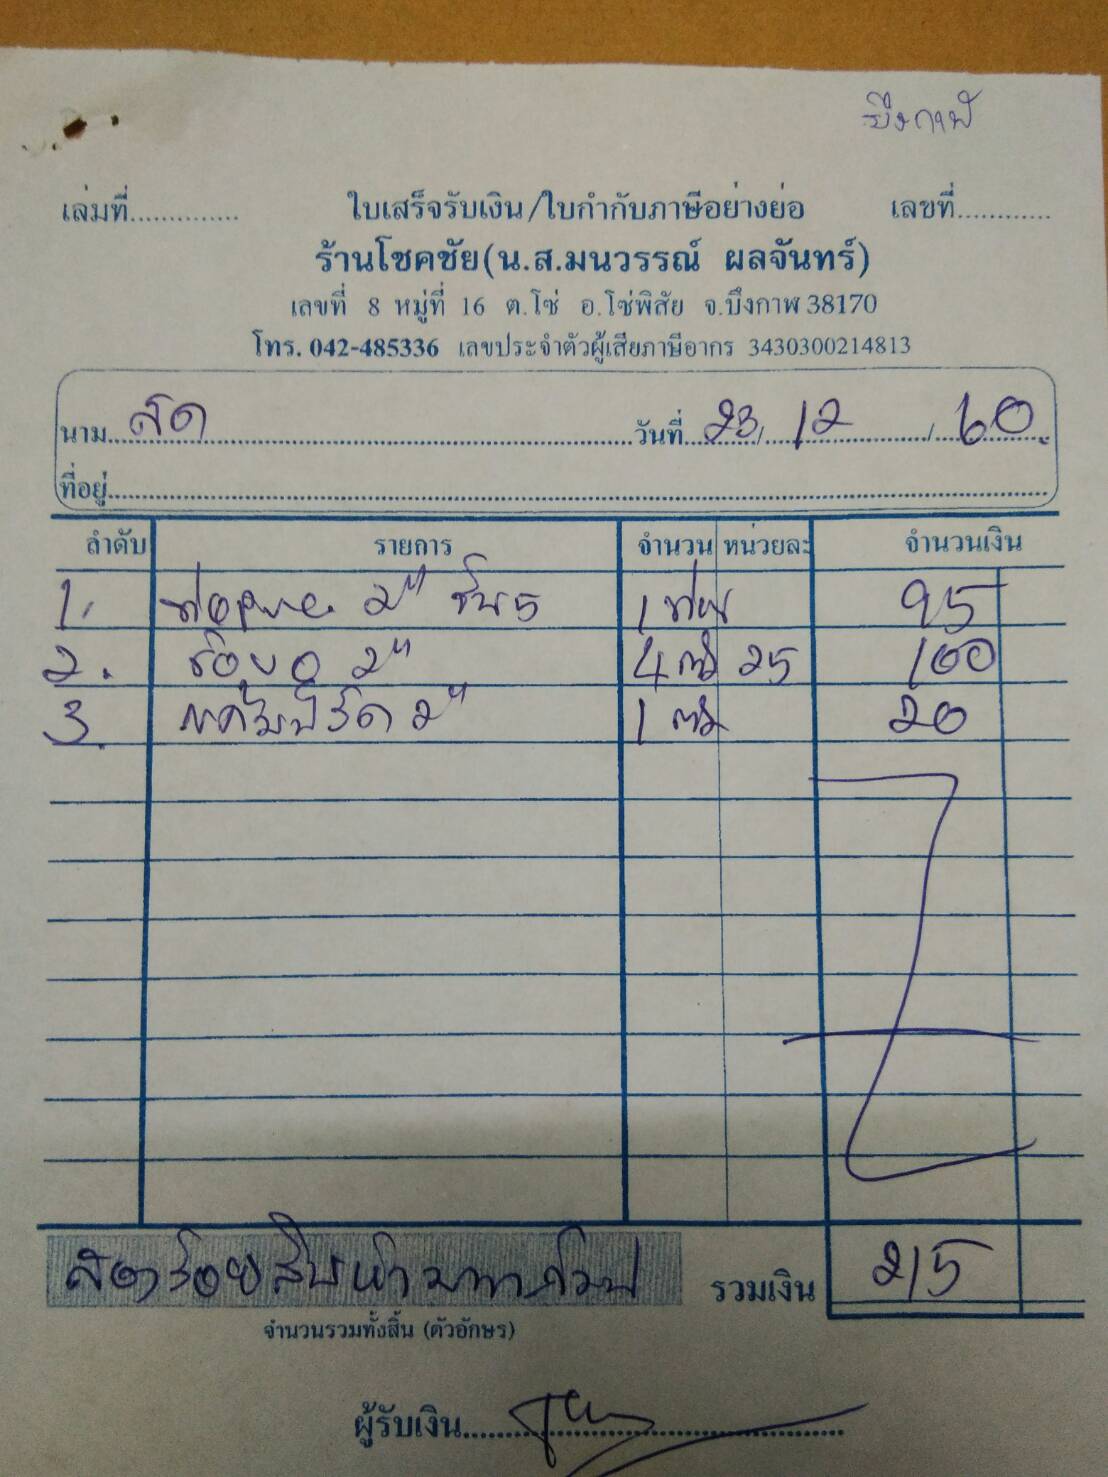 บึงกาฬ
เล่มที่.............. ใบเสร็จรับเงิน/ใบกำกับภาษีอย่างย่อ เลขที่............
ร้านโชคชัย(น.ส.มนวรรณ์ ผลจันทร์)
เลขที่ 8 หมู่ที่ 16 ต.โซ่ อ.โซ่พิสัย จ.บึงกาฬ 38170
โทร. 042-485336 เลขประจำตัวผู้เสียภาษีอากร 3430300214813
นาม สด วันที่ 23/12/60
ที่อยู่
ลำดับ รายการ จำนวน หน่วยละ จำนวนเงิน
1. ท่อpvc 2" ชั้น5 1 ท่อน 95
2. ข้องอ 2" 4 ตัว 25 100
3. 2" 1 ตัว 20
สองร้อยสิบห้าบาทถ้วน รวมเงิน 215
จำนวนรวมทั้งสิ้น (ตัวอักษร)
ผู้รับเงิน